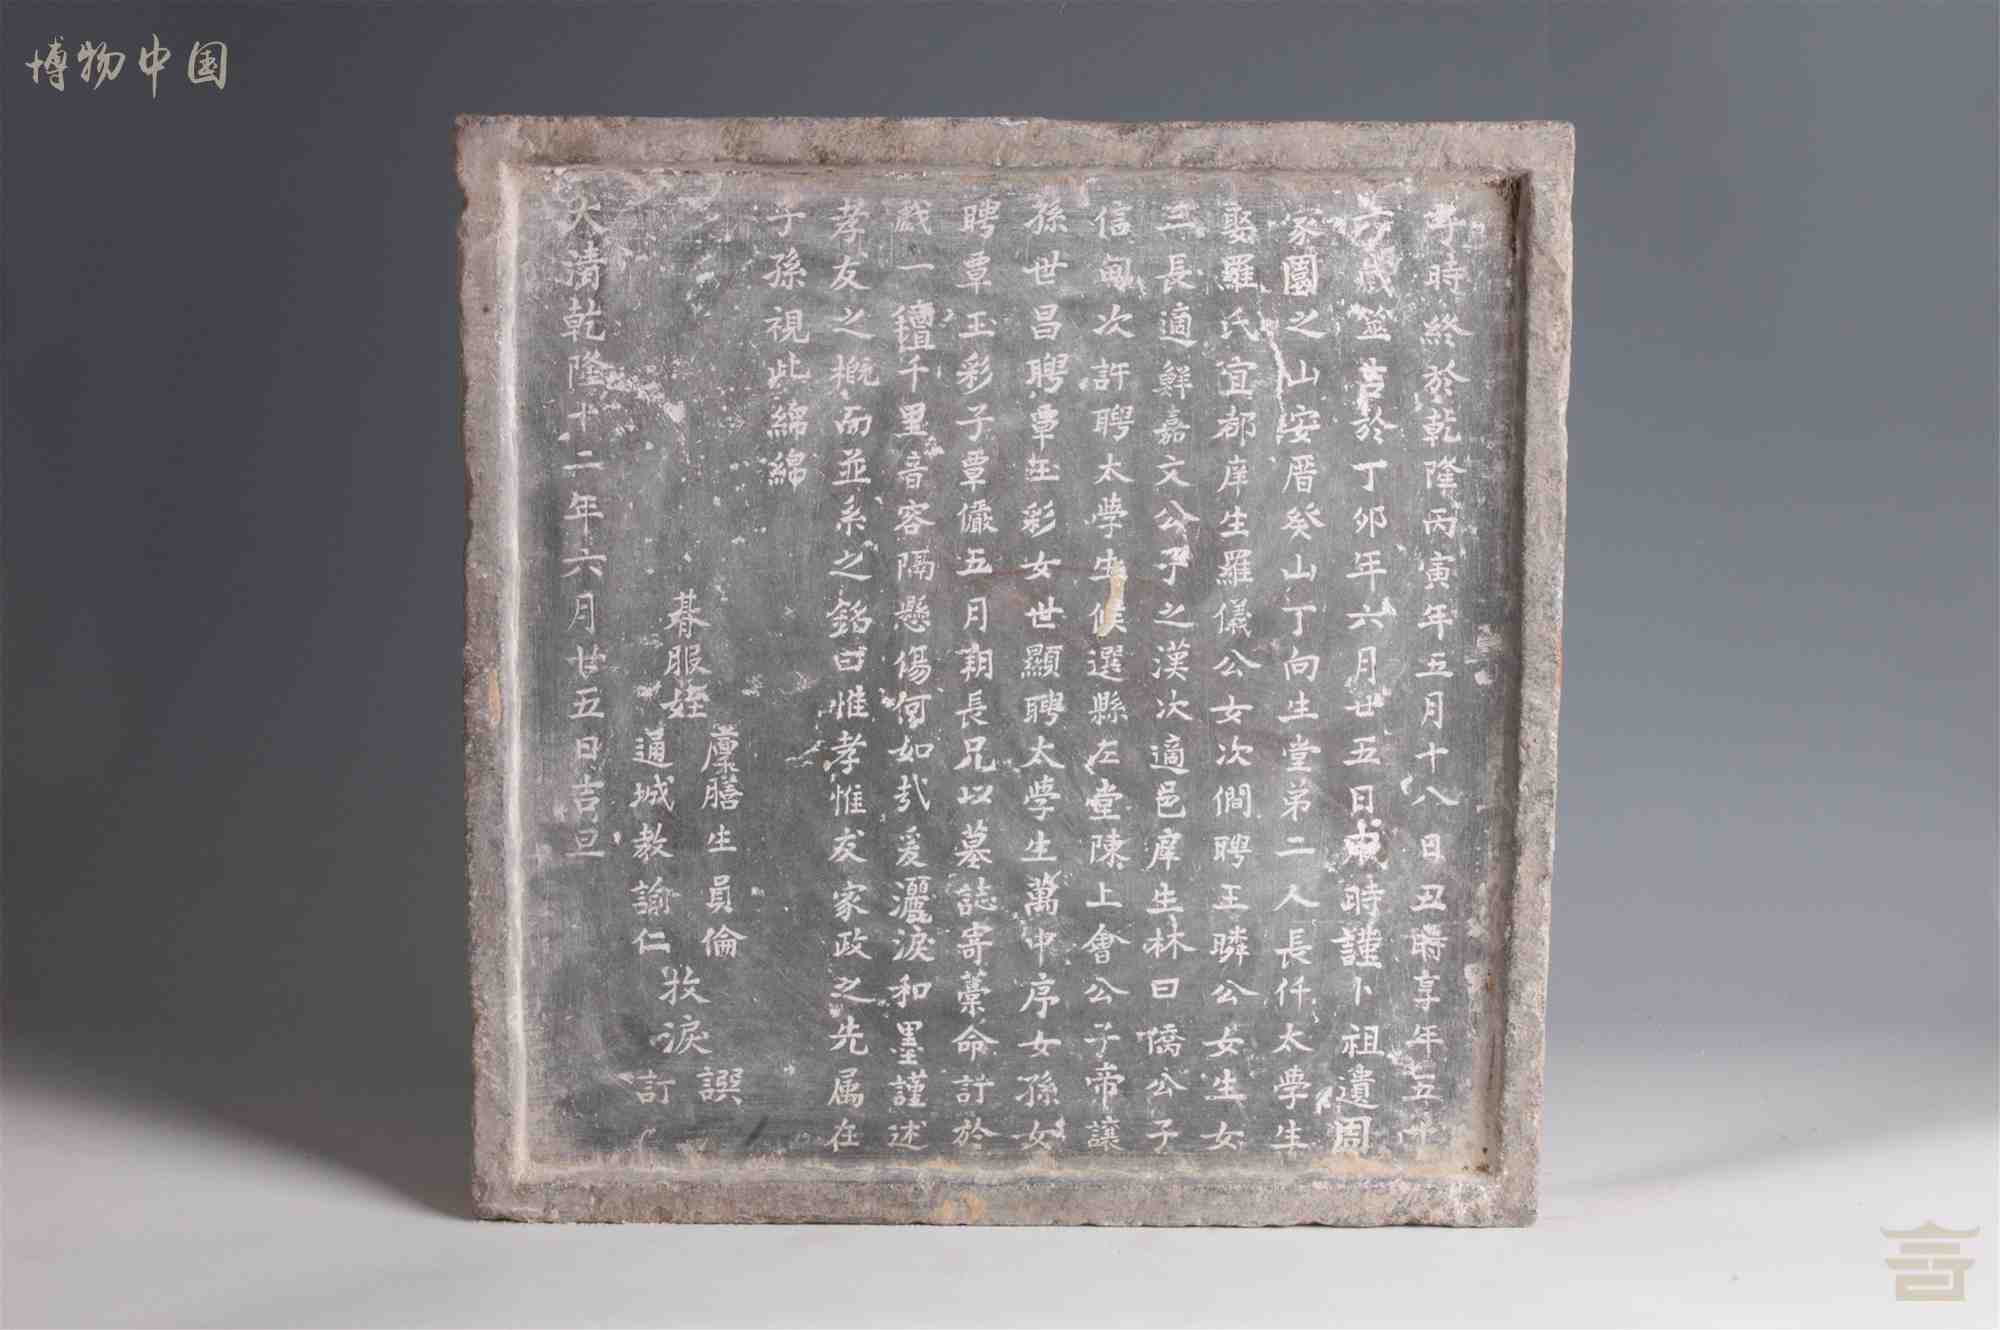 博物中国
子時終於乾隆丙寅年五月十八日丑時享年五十
有歲筮吉於丁卯年六月廿五日申時謹卜祖遺周
家園之山安厝癸山丁向生堂弟二人長仟太學生
娶羅氏宜都庠生羅儀公女次僩聘王瞵公女生女
三長適鮮嘉文公子之漢次適邑庠生林曰僑公子
信甸次許聘太學生候選縣左堂陳上會公子帝讓
孫世昌聘覃玉彩女世顯聘太學生萬中序女孫女
聘覃玉彩子覃儼五月朔長兄以墓誌寄藁命訂於
戲一穜千里音容隔懸傷何如哉爰灑淚和墨謹述
孝友之概而並系之銘曰惟孝惟友家政之先属在
子孫視此綿綿
朞服姪
廩膳生員倫
通城教諭仁
抆淚
譔
訂
大清乾隆十二年六月廿五日吉旦